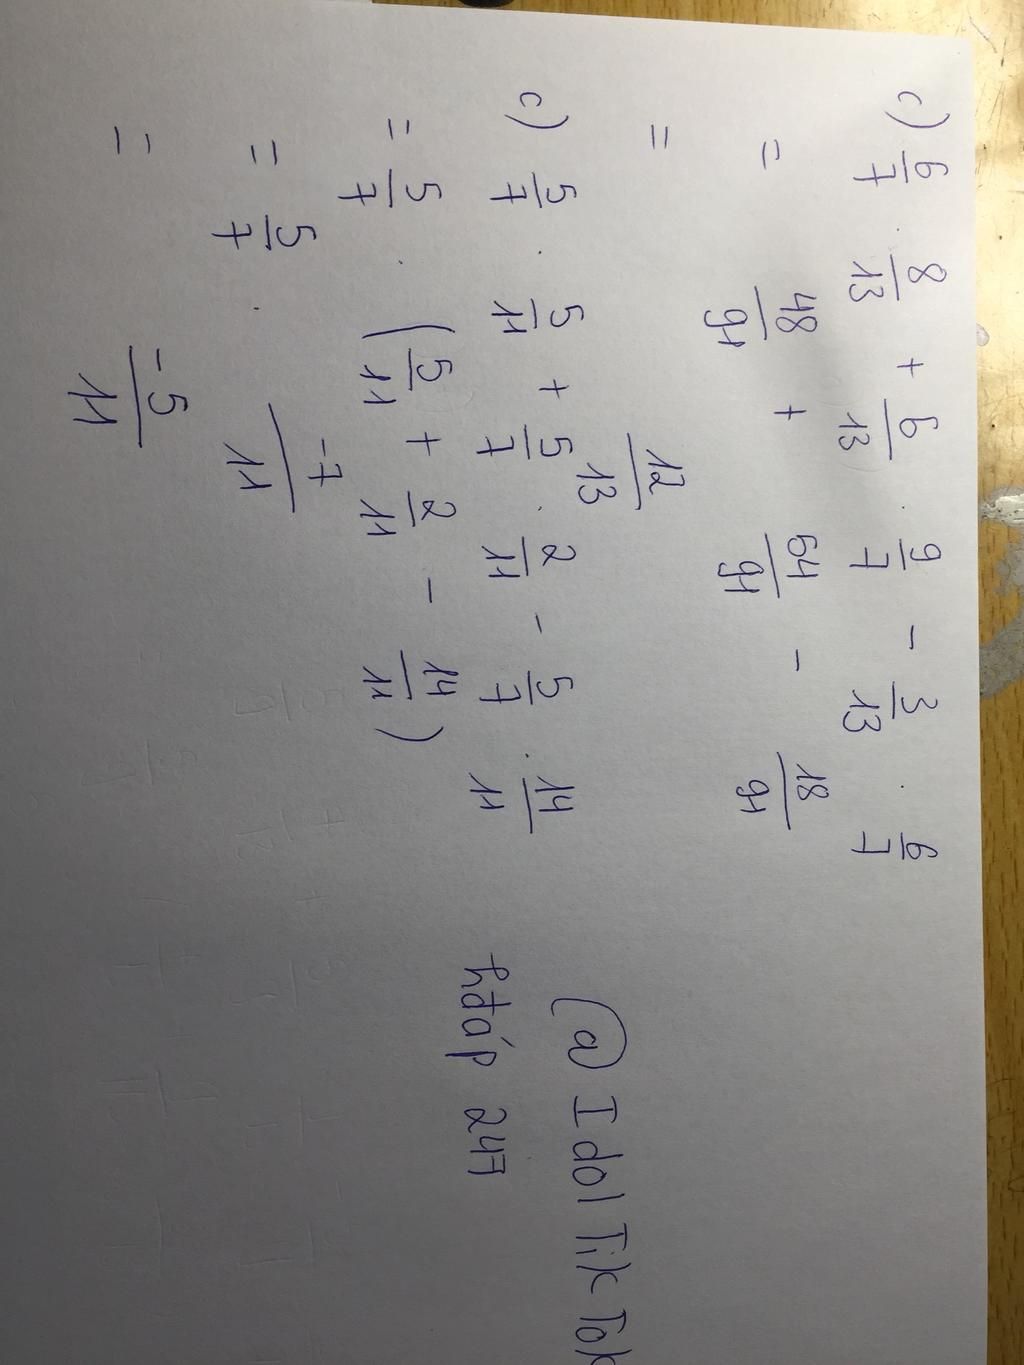 c) 6/7 . 8/13 + 6/13 . 9/7 - 3/13 . 6/7
= 48/91 + 54/91 - 18/91
= 12/13
c) 5/7 . 5/11 + 5/7 . 2/11 - 5/7 . 14/11
= 5/7 . (5/11 + 2/11 - 14/11)
= 5/7 . -7/11
= -5/11
@ Idol Tik Tok
hđáp 247